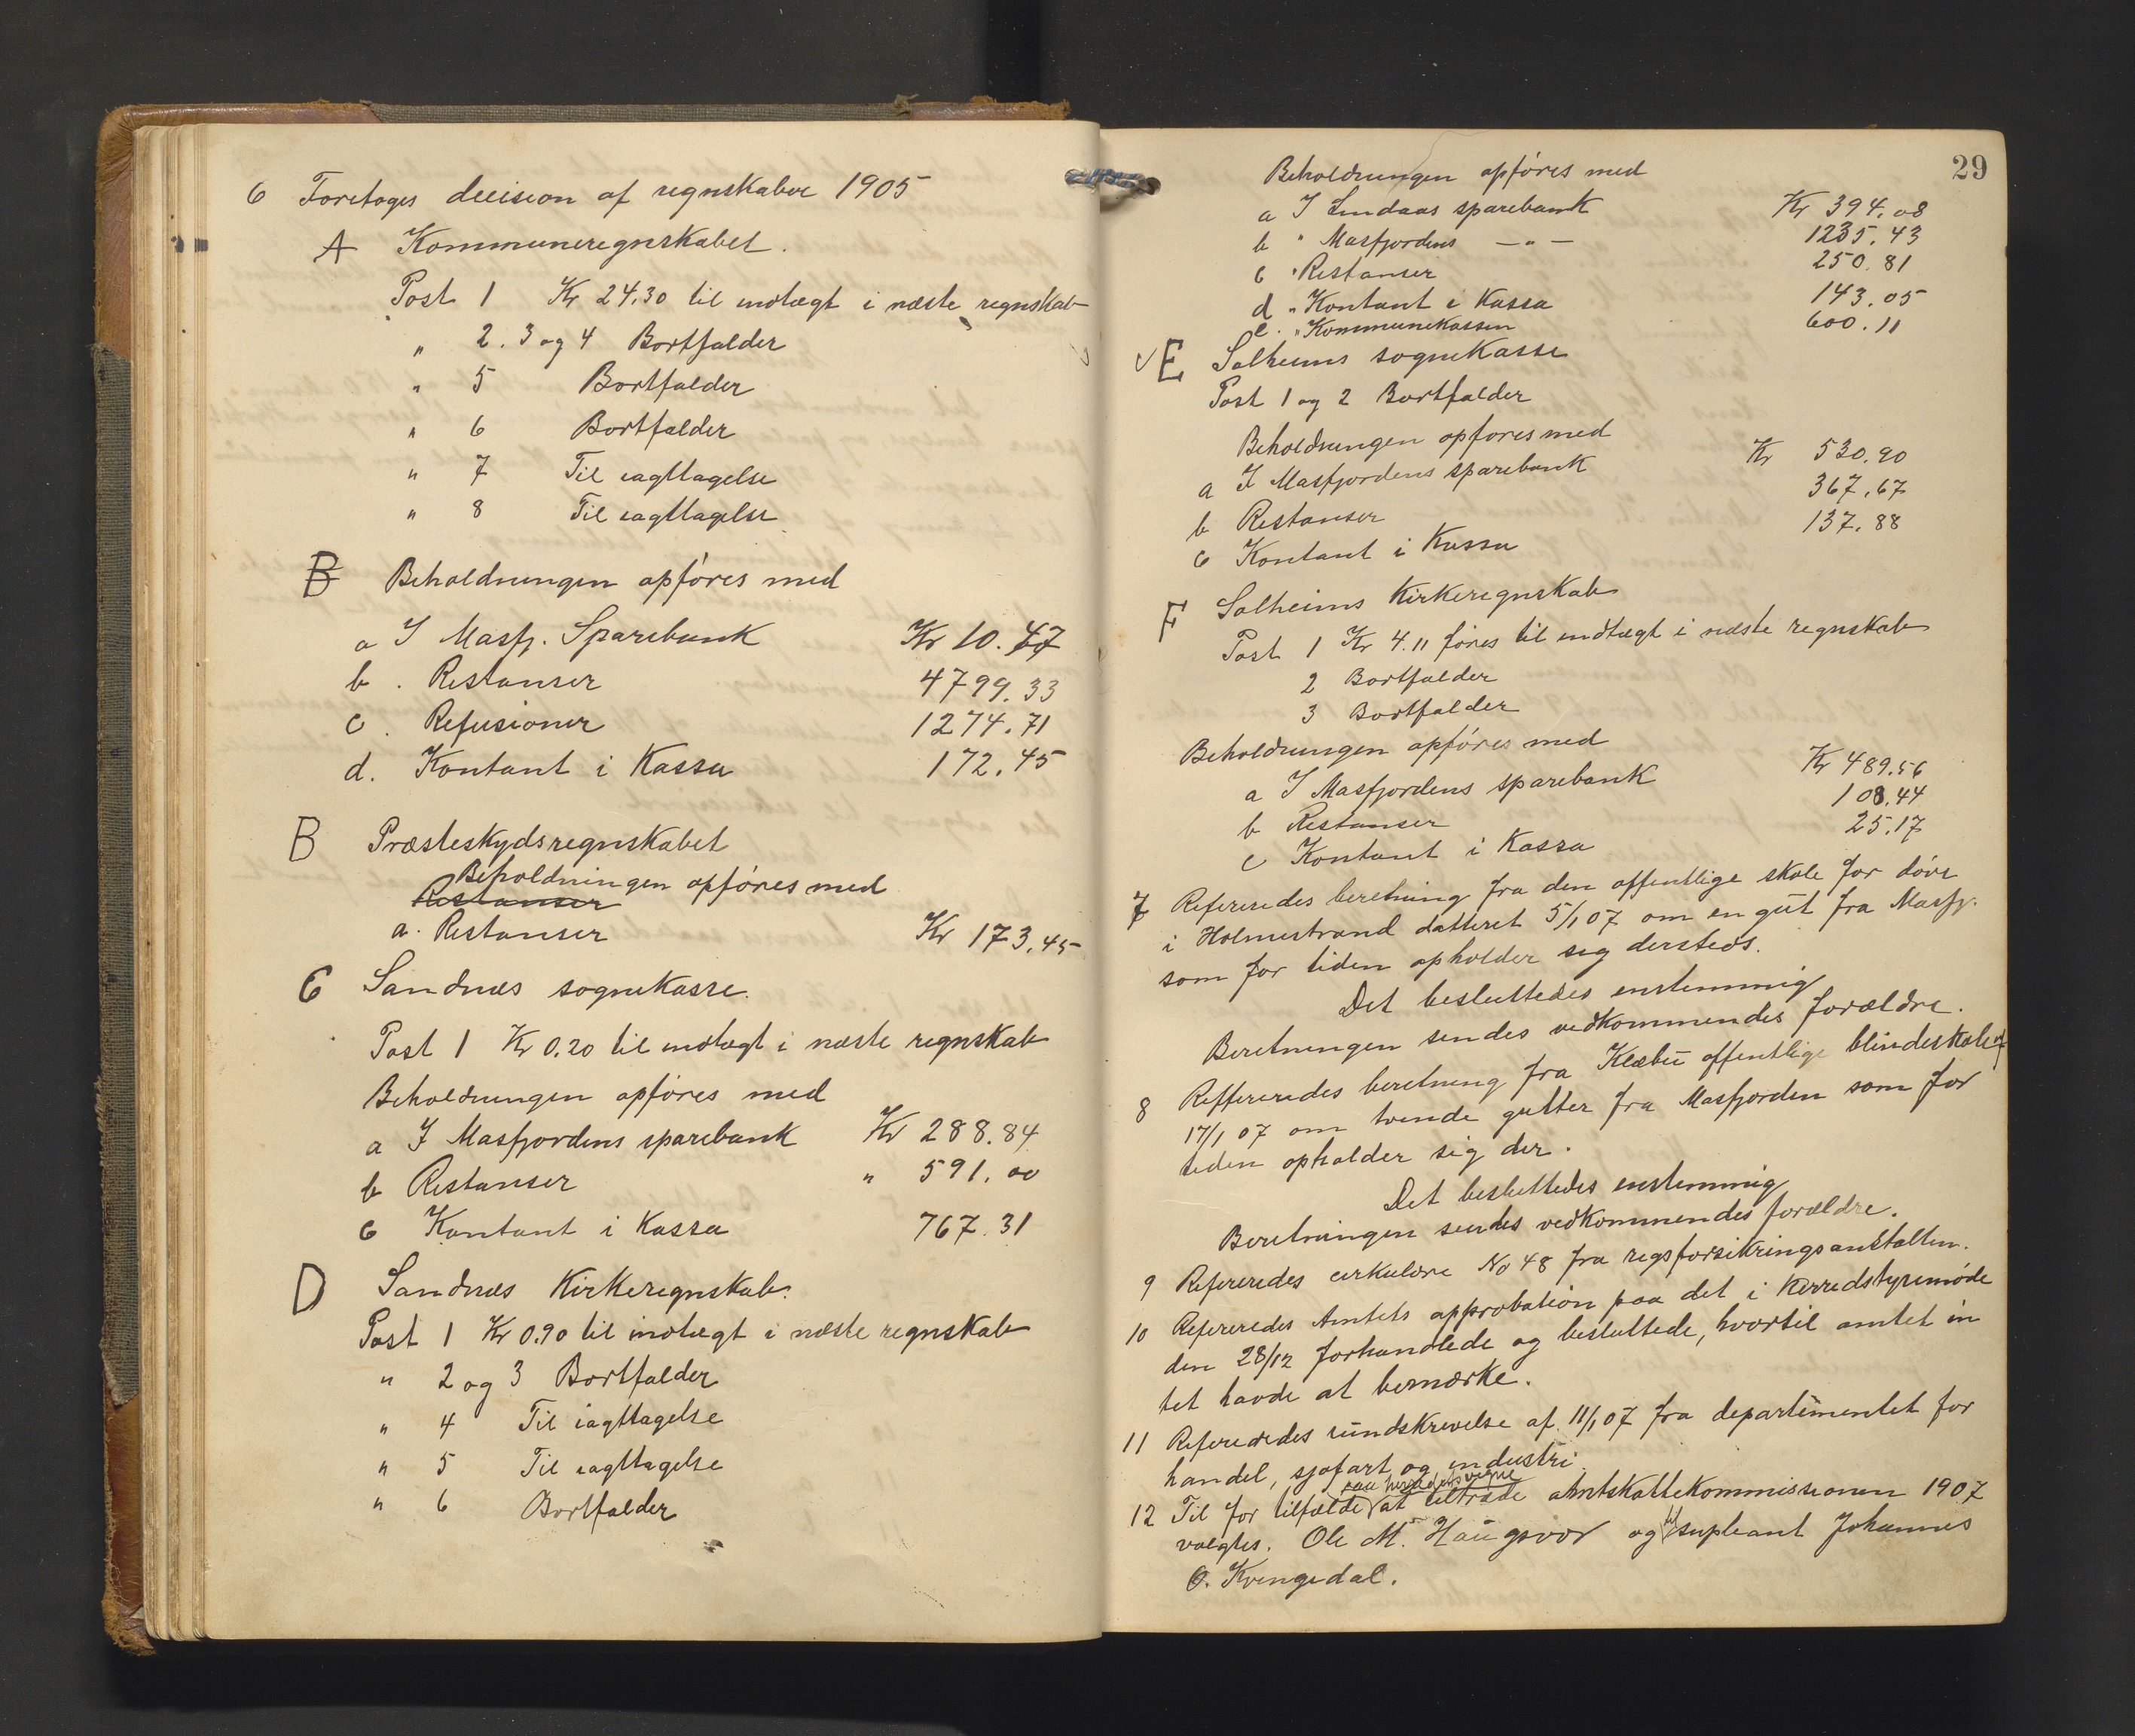 6 Foretages decision af regnskaber 1905
A Kommuneregnskabet.
Post 1 Kr 24.30 til indtægt i næste regnskab
" 2. 3 og 4 Bortfalder
" 5 Bortfalder
" 6 Bortfalder
" 7 Til iagttagelse
" 8 Til iagttagelse
B Beholdningen opføres med
a I Masfj. Sparebank Kr 10.47
b . Restanser 4799.33
c . Refusioner 1274.71
d. Kontant i Kassa 172.45
B Præsteskydsregnskabet
Beholdningen opføres med
Restanser
a. Restanser Kr 173.45
C Sandnæs sognekasse.
Post 1 Kr 0.20 til indtægt i næste regnskab
Beholdningen opføres med
a I Masfjordens sparebank Kr 288.84
b Restanser " 591.00
c Kontant i Kassa 767.31
D Sandnæs Kirkeregnskab.
Post 1 Kr 0.90 til indtægt i næste regnskab
" 2 og 3 Bortfalder
" 4 Til iagttagelse
" 5 Til iagttagelse
" 6 Bortfalder
29
Beholdningen opføres med
a I Lindaas sparebank Kr 394.08
b " Masfjordens — " — 1235.43
c " Restanser 250.81
d " Kontant i Kassa 143.05
e. " Kommunekassen 600.11
E Solheims sognekasse
Post 1 og 2 Bortfalder
Beholdningen opføres med
a I Masfjordens sparebank Kr 530.90
b Restanser 367.67
c Kontant i Kassa 137.88
F Solheims Kirkeregnskab
Post 1 Kr 4.11 føres til indtægt i næste regnskab
2 Bortfalder
3 Bortfalder
Beholdningen opføres med
a I Masfjordens sparebank Kr 489.56
b Restanser 108.44
c Kontant i Kassa 25.17
7 Refereredes beretning fra den offentlige skole for døve
i Holmestrand datteret 5/1 07 om en gut fra Masfj.
som for tiden opholder sig dersteds.
Det besluttedes enstemmig
Beretningen sendes vedkommendes forældre.
8 Reffereredes beretning fra Klæbu offentlige blindeskole af
17/1 07 om tvende gutter fra Masfjorden som for
tiden opholder sig der.
Det besluttedes enstemmig
Beretningen sendes vedkommendes forældre.
9 Refereredes cirkulære No 48 fra regsforsikringsanstalten.
10 Refereredes Amtets approbation paa det i Herredstyremøde
den 28/12 forhandlede og besluttede, hvortil amtet in
tet havde at bemærke.
11 Refereredes rundskrivelse af 11/1 07 fra departementet for
handel, sjøfart og industri.
paa herredets vegne
12 Til for tilfælde at tiltræde amtskattekommissionen 1907
valgtes. Ole M. Haugsvær og til supleant Johannes
O. Kvingedal.